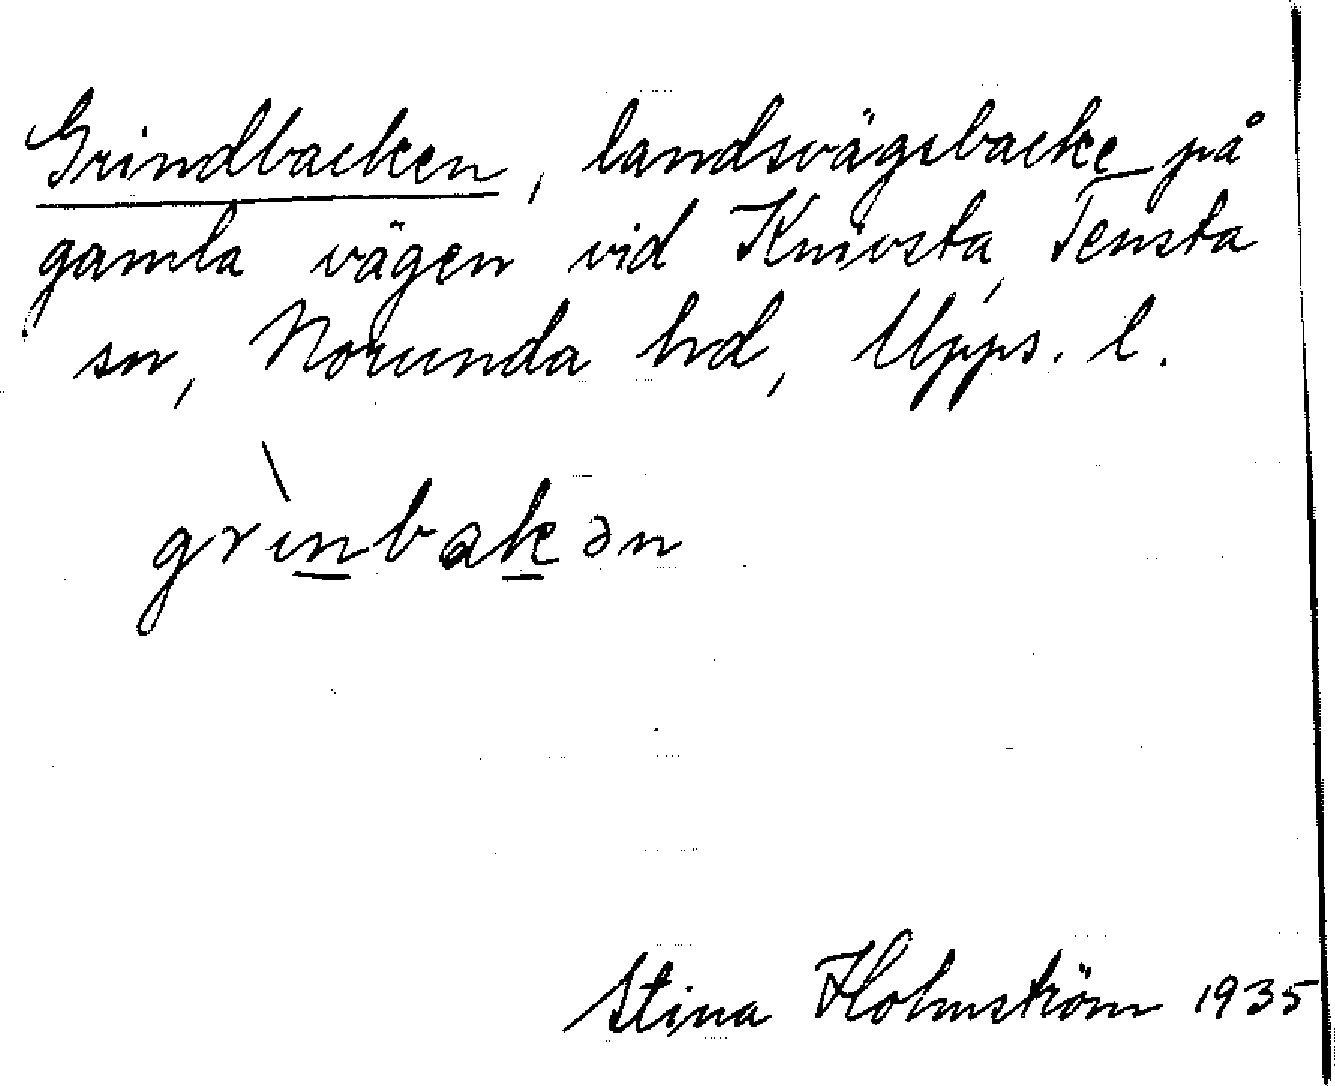 Grindbacken, landsvägsbacke på
gamla vägen vid Knivsta, Tensta
sn, Norunda hd, Upps. l.
grìnbakən
Stina Holmström 1935